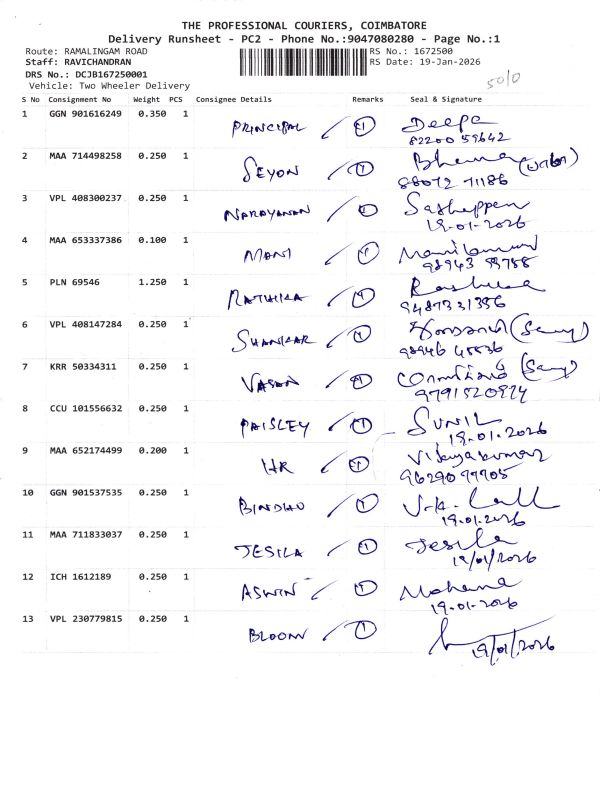 THE PROFESSIONAL COURIERS, COIMBATORE
Delivery Runsheet - PC2 - Phone No.:9047080280 - Page No.:1
Route: RAMALINGAM ROAD RS No.: 1672500
Staff: RAVICHANDRAN RS Date: 19-Jan-2026
DRS No.: DCJB167250001
Vehicle: Two Wheeler Delivery
50/0
S No Consignment No Weight PCS Consignee Details Remarks Seal & Signature
1 GGN 901616249 0.350 1 PRINCIPAL 1 Deepa
82200 59642
2 MAA 714498258 0.250 1 SEYON 1 Bhema
88072 71186
3 VPL 408300237 0.250 1 NARAYANAN 1
19-01-2026
4 MAA 653337386 0.100 1 MANI 1
98943 99788
5 PLN 69546 1.250 1 RATHIKA 1
9487331356
6 VPL 408147284 0.250 1 SHANKAR 1
98946 45836
7 KRR 50334311 0.250 1 VASAN 1
9791520974
8 CCU 101556632 0.250 1 PAISLEY 1 SUNIL
19.01.2026
9 MAA 652174499 0.200 1 HR 1 Vijayakumar
96290 97705
10 GGN 901537535 0.250 1 BINDHU 1
19.01.2026
11 MAA 711833037 0.250 1 JESILA 1 Jesila
19/01/2026
12 ICH 1612189 0.250 1 ASWIN 1 Mohana
19-01-2026
13 VPL 230779815 0.250 1 BLOOM 1
19/01/2026